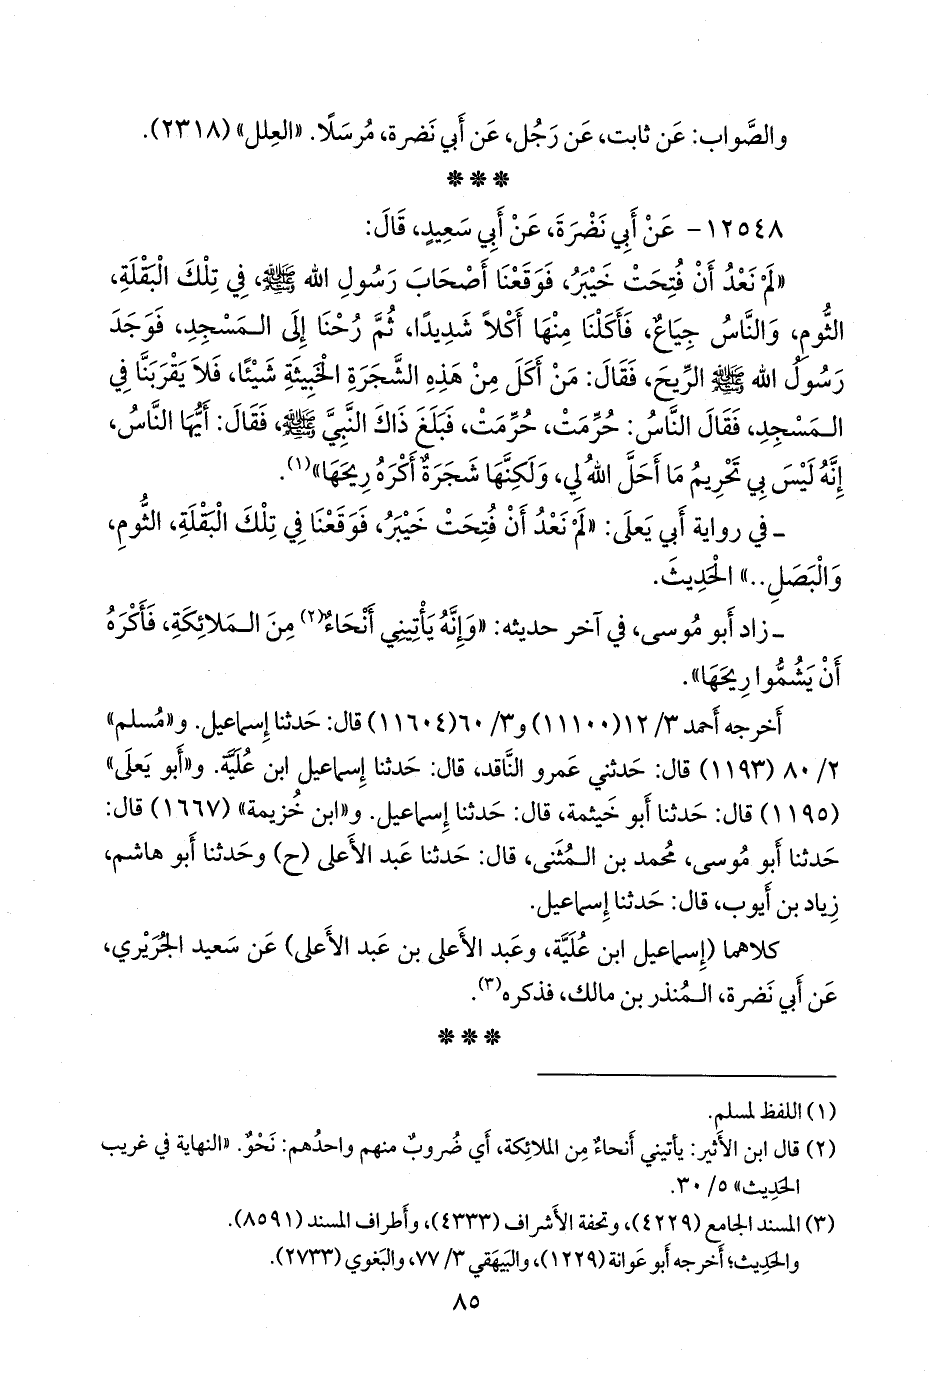 والصَّواب: عَن ثابت، عَن رَجُل، عَن أَبي نَضرة، مُرسَلًا. «العِلل» (٢٣١٨).
* * *
١٢٥٤٨- عَنْ أَبِي نَضْرَةَ، عَنْ أَبِي سَعِيدٍ، قَالَ:
«لَمْ نَعْدُ أَنْ فُتِحَتْ خَيْبَرُ، فَوَقَعْنَا أَصْحَابَ رَسُولِ الله ﷺ، فِي تِلْكَ الْبَقْلَةِ،
الثُّومِ، وَالنَّاسُ جِيَاعٌ، فَأَكَلْنَا مِنْهَا أَكْلاً شَدِيدًا، ثُمَّ رُحْنَا إِلَى الـمَسْجِدِ، فَوَجَدَ
رَسُولُ الله ﷺ الرِّيحَ، فَقَالَ: مَنْ أَكَلَ مِنْ هَذِهِ الشَّجَرَةِ الْخَبِيثَةِ شَيْئًا، فَلاَ يَقْرَبَنَّا فِي
الـمَسْجِدِ، فَقَالَ النَّاسُ: حُرِّمَتْ، حُرِّمَتْ، فَبَلَغَ ذَاكَ النَّبِيَّ ﷺ، فَقَالَ: أَيُّهَا النَّاسُ،
إِنَّهُ لَيْسَ بِي تَحْرِيمُ مَا أَحَلَّ اللهُ لِي، وَلَكِنَّهَا شَجَرَةٌ أَكْرَهُ رِيحَهَا»(١).
ـ في رواية أَبي يَعلَى: «لَمْ نَعْدُ أَنْ فُتِحَتْ خَيْبَرُ، فَوَقَعْنَا فِي تِلْكَ الْبَقْلَةِ، الثُّومِ،
وَالْبَصَلِ..» الْحَدِيثَ.
ـ زاد أَبو مُوسى، في آخر حديثه: «وَإِنَّهُ يَأْتِينِي أَنْحَاءٌ(٢) مِنَ الـمَلائِكَةِ، فَأَكْرَهُ
أَنْ يَشُمُّوا رِيحَهَا».
أَخرجه أَحمد ٣/ ١٢(١١١٠٠) و٣/ ٦٠(١١٦٠٤) قال: حَدثنا إِسماعيل. و«مُسلم»
٢/ ٨٠ (١١٩٣) قال: حَدثني عَمرو النَّاقد، قال: حَدثنا إِسماعيل ابن عُلَيَّة. و«أَبو يَعلَى»
(١١٩٥) قال: حَدثنا أَبو خَيثمة، قال: حَدثنا إِسماعيل. و«ابن خُزيمة» (١٦٦٧) قال:
حَدثنا أَبو مُوسى، مُحمد بن الـمُثنى، قال: حَدثنا عَبد الأَعلى (ح) وحَدثنا أَبو هاشم،
زياد بن أَيوب، قال: حَدثنا إِسماعيل.
كلاهما (إِسماعيل ابن عُلَيَّة، وعَبد الأَعلى بن عَبد الأَعلى) عَن سَعيد الجُرَيْري،
عَن أَبي نَضرة، الـمُنذر بن مالك، فذكره(٣).
* * *
(١) اللفظ لمسلم.
(٢) قال ابن الأَثير: يأتيني أَنحاءٌ مِن الملائكة، أَي ضُروبٌ منهم واحدُهم: نَحْوٌ. «النهاية في غريب
الحَدِيث» ٥/ ٣٠.
(٣) المسند الجامع (٤٢٢٩)، وتحفة الأَشراف (٤٣٣٣)، وأَطراف المسند (٨٥٩١).
والحَدِيث؛ أَخرجه أَبو عَوانة (١٢٢٩)، والبَيهَقي ٣/ ٧٧، والبَغوي (٢٧٣٣).
٨٥